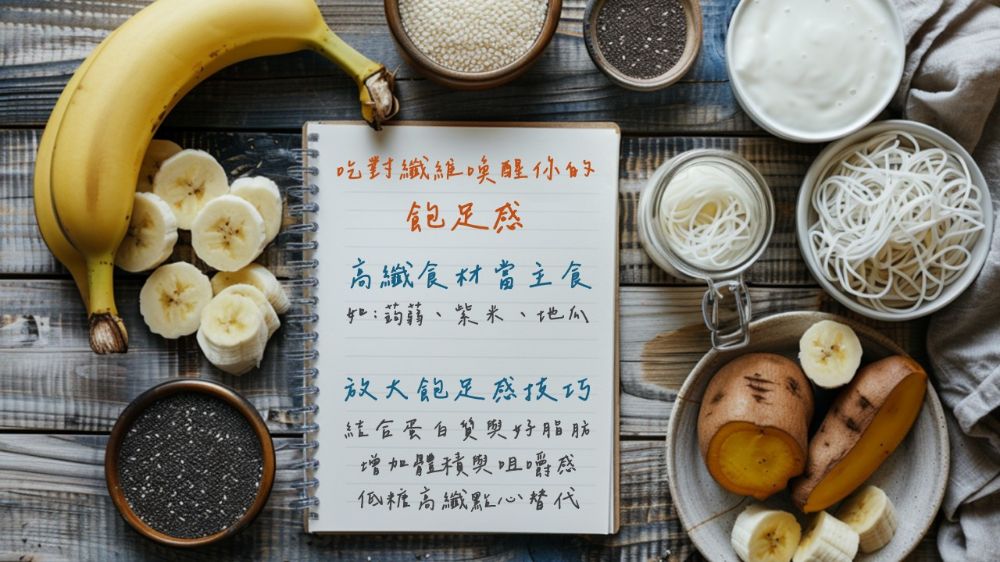 吃對纖維喚醒你的
飽足感
高纖食材當主食
如:蒟蒻、紫米、地瓜
放大飽足感技巧
結合蛋白質與好脂肪
增加體積與咀嚼感
低糖高纖點心替代